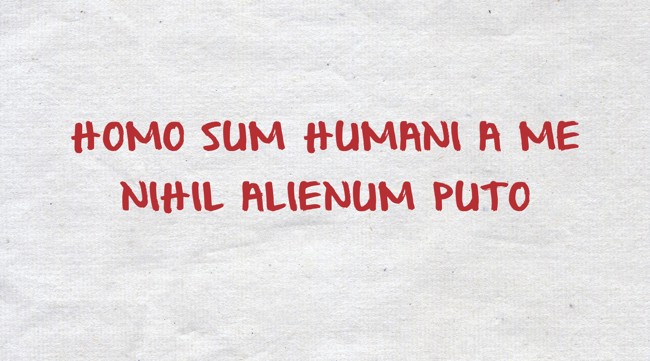 HOMO SUM HUMANI A ME
NIHIL ALIENUM PUTO